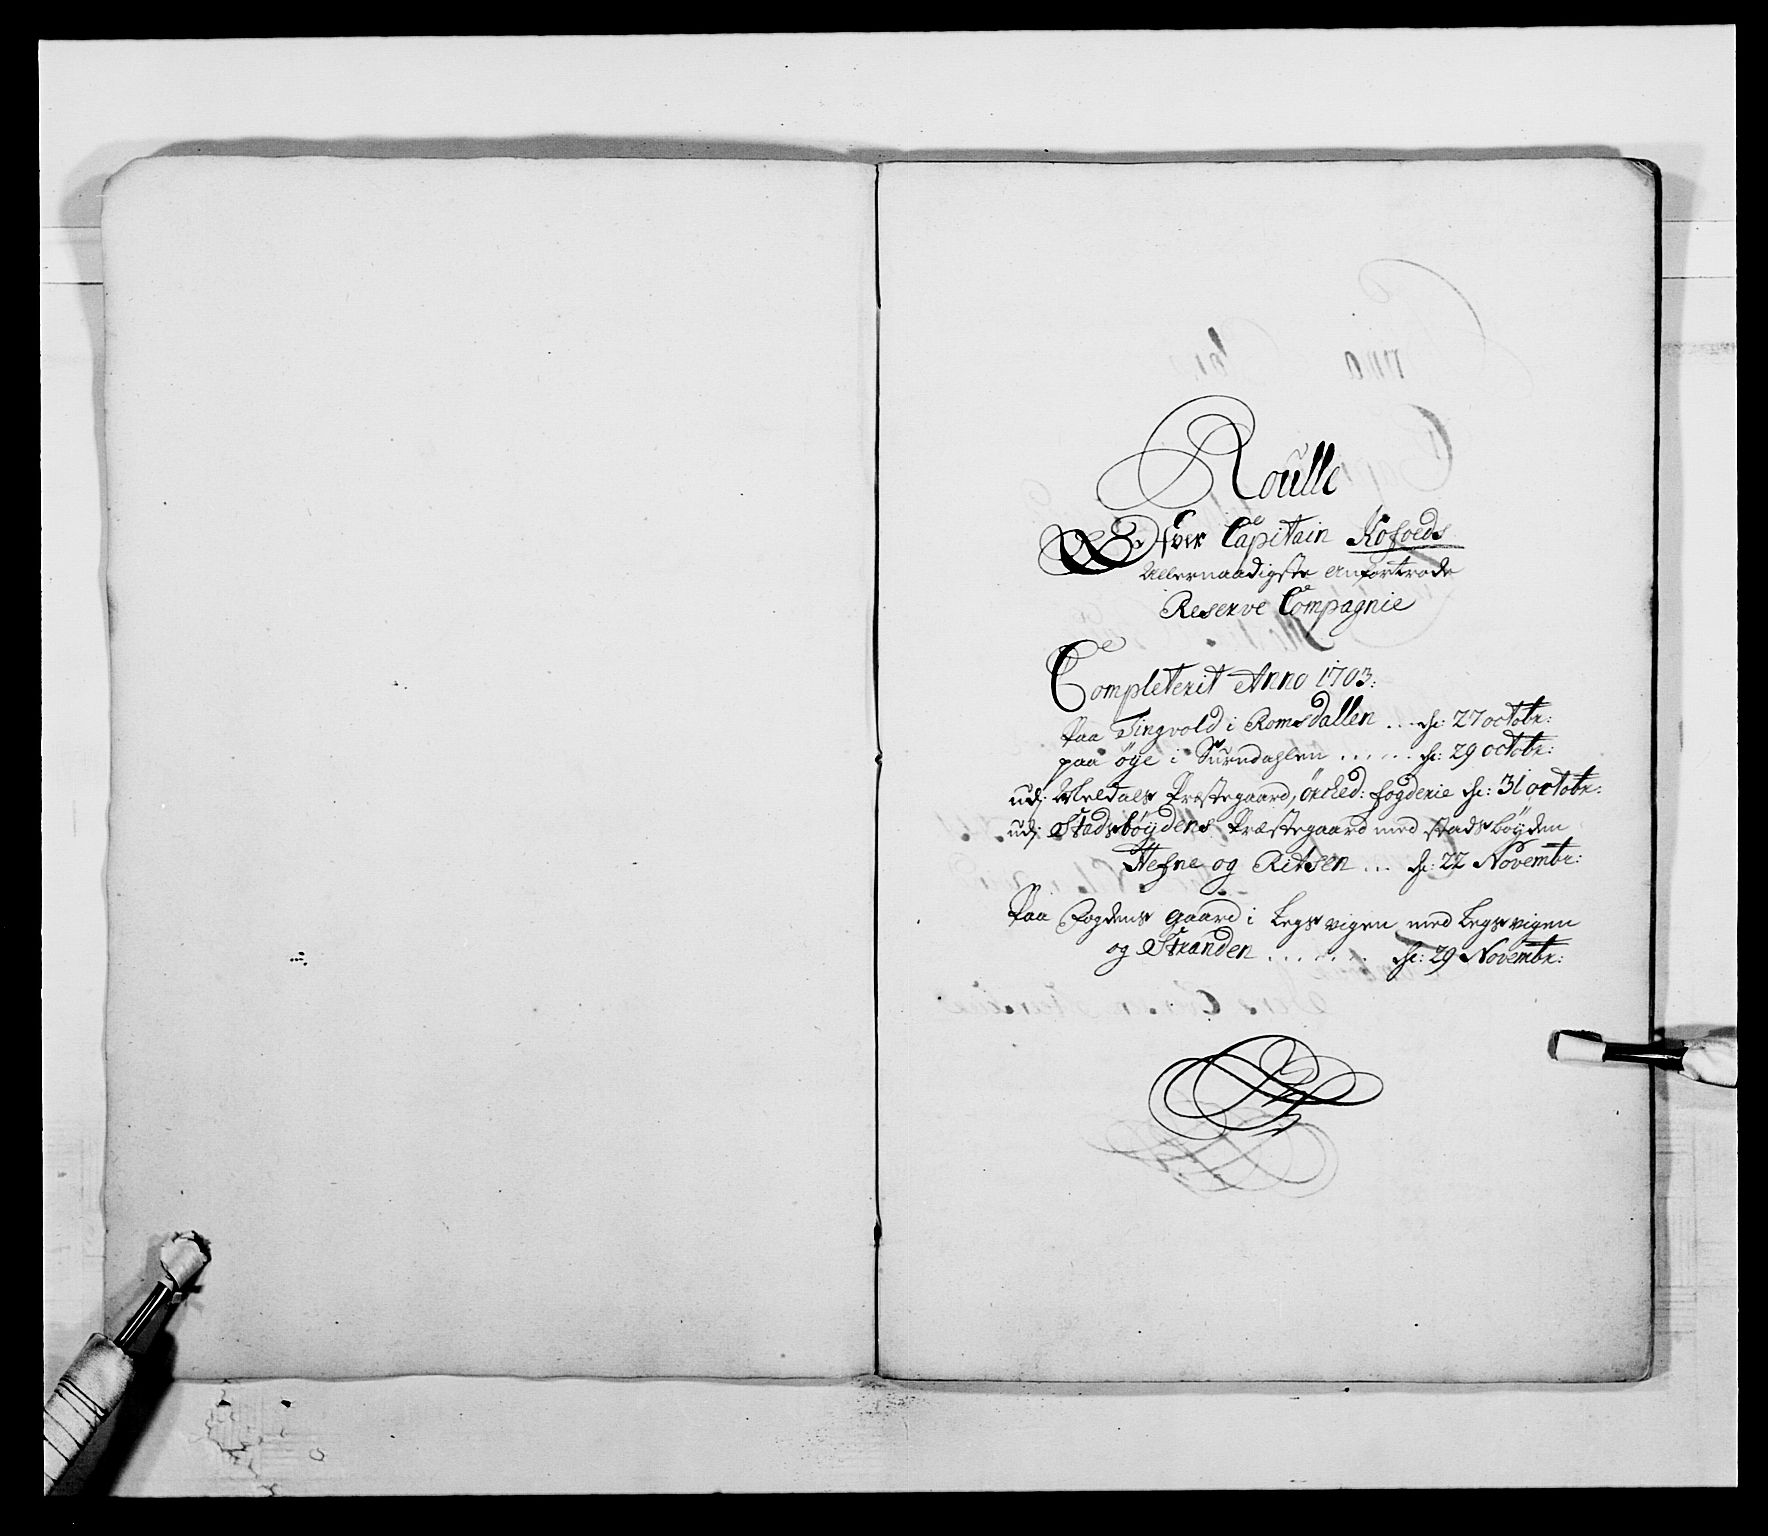 Roulle
Ofver Capitain Kofoeds
Allernaadigste anfortrode
Reserve Compagnie
Completerit Anno 1703:
Paa Tingvold i Romsdallen ... d: 27 octobr:
paa öye i Surndahlen ...... d: 29 octobr:
udj Meldals Præstegaard, örched: fogderie d: 31 octobr:
udj Stadsböydens Præstegaard med stadsböyden
Hefne og Ritsen ... d: 22 Novembr:
Paa fogdens gaard i Legsvigen med Legsvigen
og Stranden ....... d: 29 Novembr: